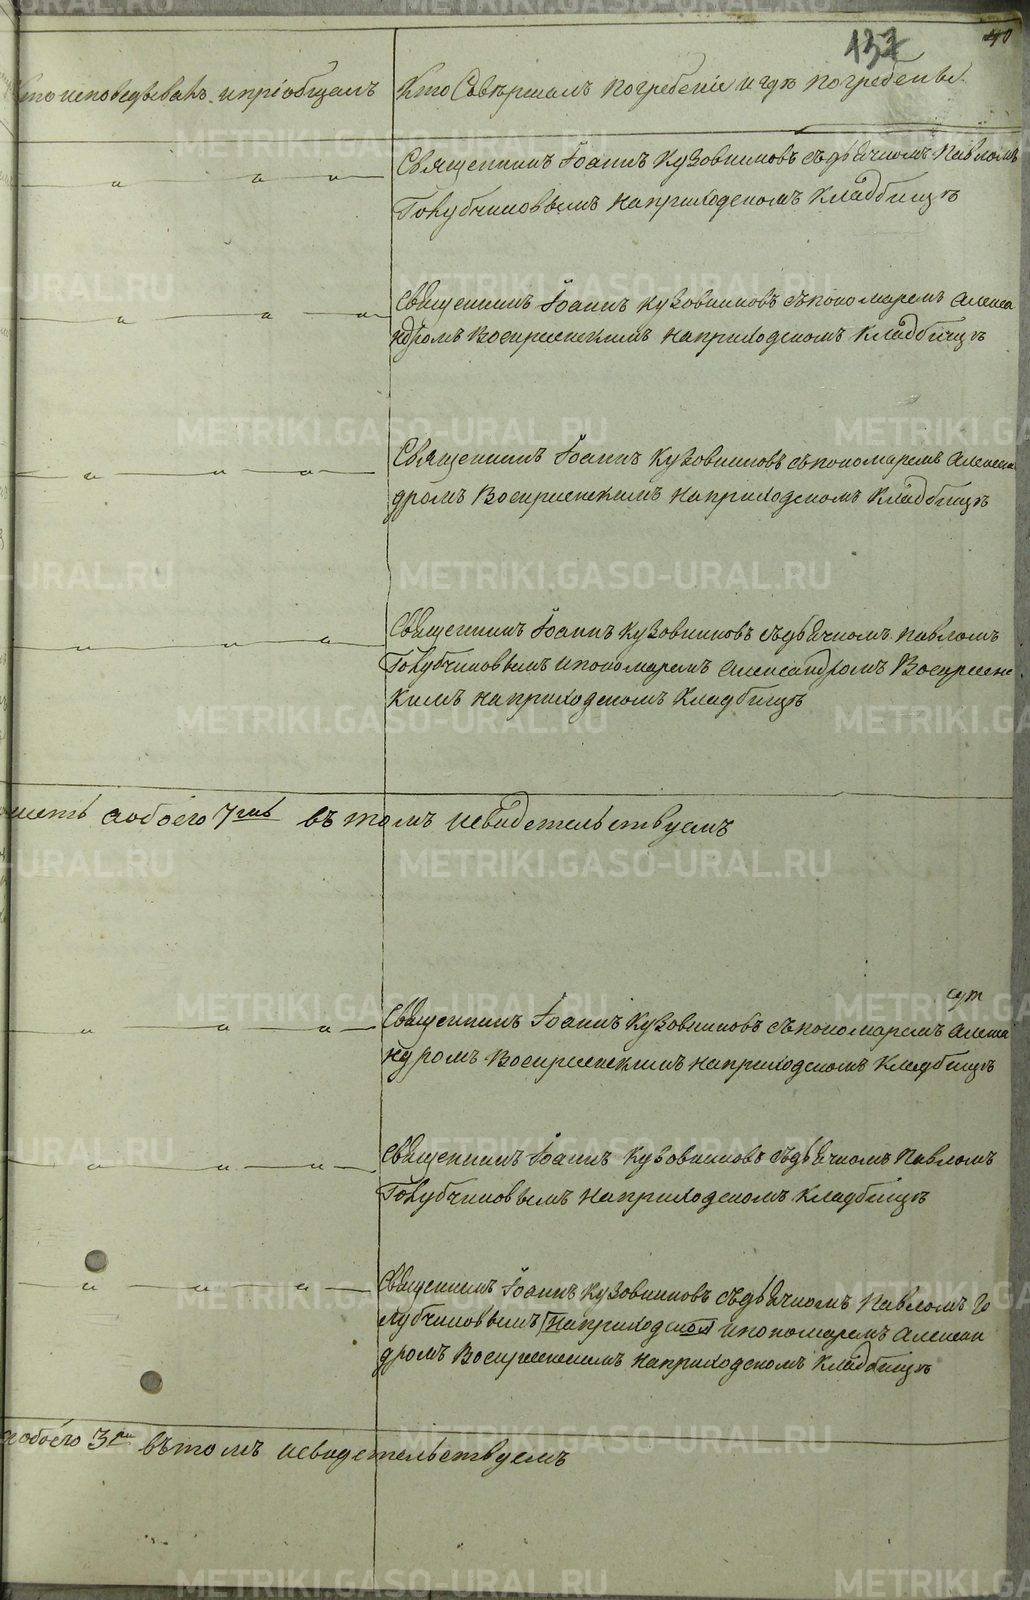 137
40
Кто исповедывалъ и пріобщалъ
Кто Совершалъ погребеніе и где погребены.
Священникъ Іоаннъ Кузовниковъ съ дьячкомъ Павломъ
Голубчиковымъ на приходскомъ кладбищъ
Священникъ Іоаннъ Кузовниковъ съ пономаремъ Алекса
ндромъ Воскресенскимъ на приходскомъ кладбищъ
Священникъ Іоаннъ Кузовниковъ съ пономаремъ Алексан
дромъ Воскресенскимъ на приходскомъ кладбищъ
Священникъ Іоаннъ Кузовниковъ съ дьячкомъ Павломъ
Голубчиковымъ и пономаремъ Александромъ Воскресенс
кимъ на приходскомъ кладбищъ
обоего 7мь въ томъ и свидетельствуемъ
Священникъ Іоаннъ Кузовниковъ съ пономаремъ Алекса
ндромъ Воскресенскимъ на приходскомъ кладбищъ
Священникъ Іоаннъ Кузовниковъ съ дьячкомъ Павломъ
Голубчиковымъ на приходскомъ кладбищъ
Священникъ Іоаннъ Кузовниковъ съ дьячкомъ Павломъ Го
лубчиковымъ на приходском и пономаремъ Алексан
дромъ Воскресенскимъ на приходскомъ кладбищъ
обоего 3ри въ томъ и свидетельствуемъ
METRIKI.GASO-URAL.RU